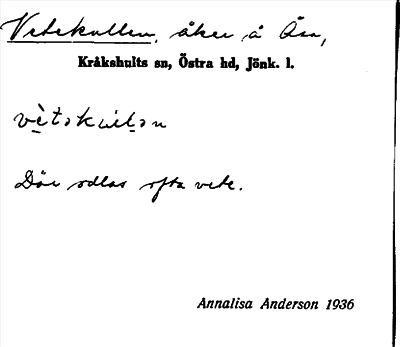 Vetekullen, åker å Åsa,
Kråkshults sn, Östra hd, Jönk. l.
Där odlas ofta vete.
Annalisa Anderson 1936